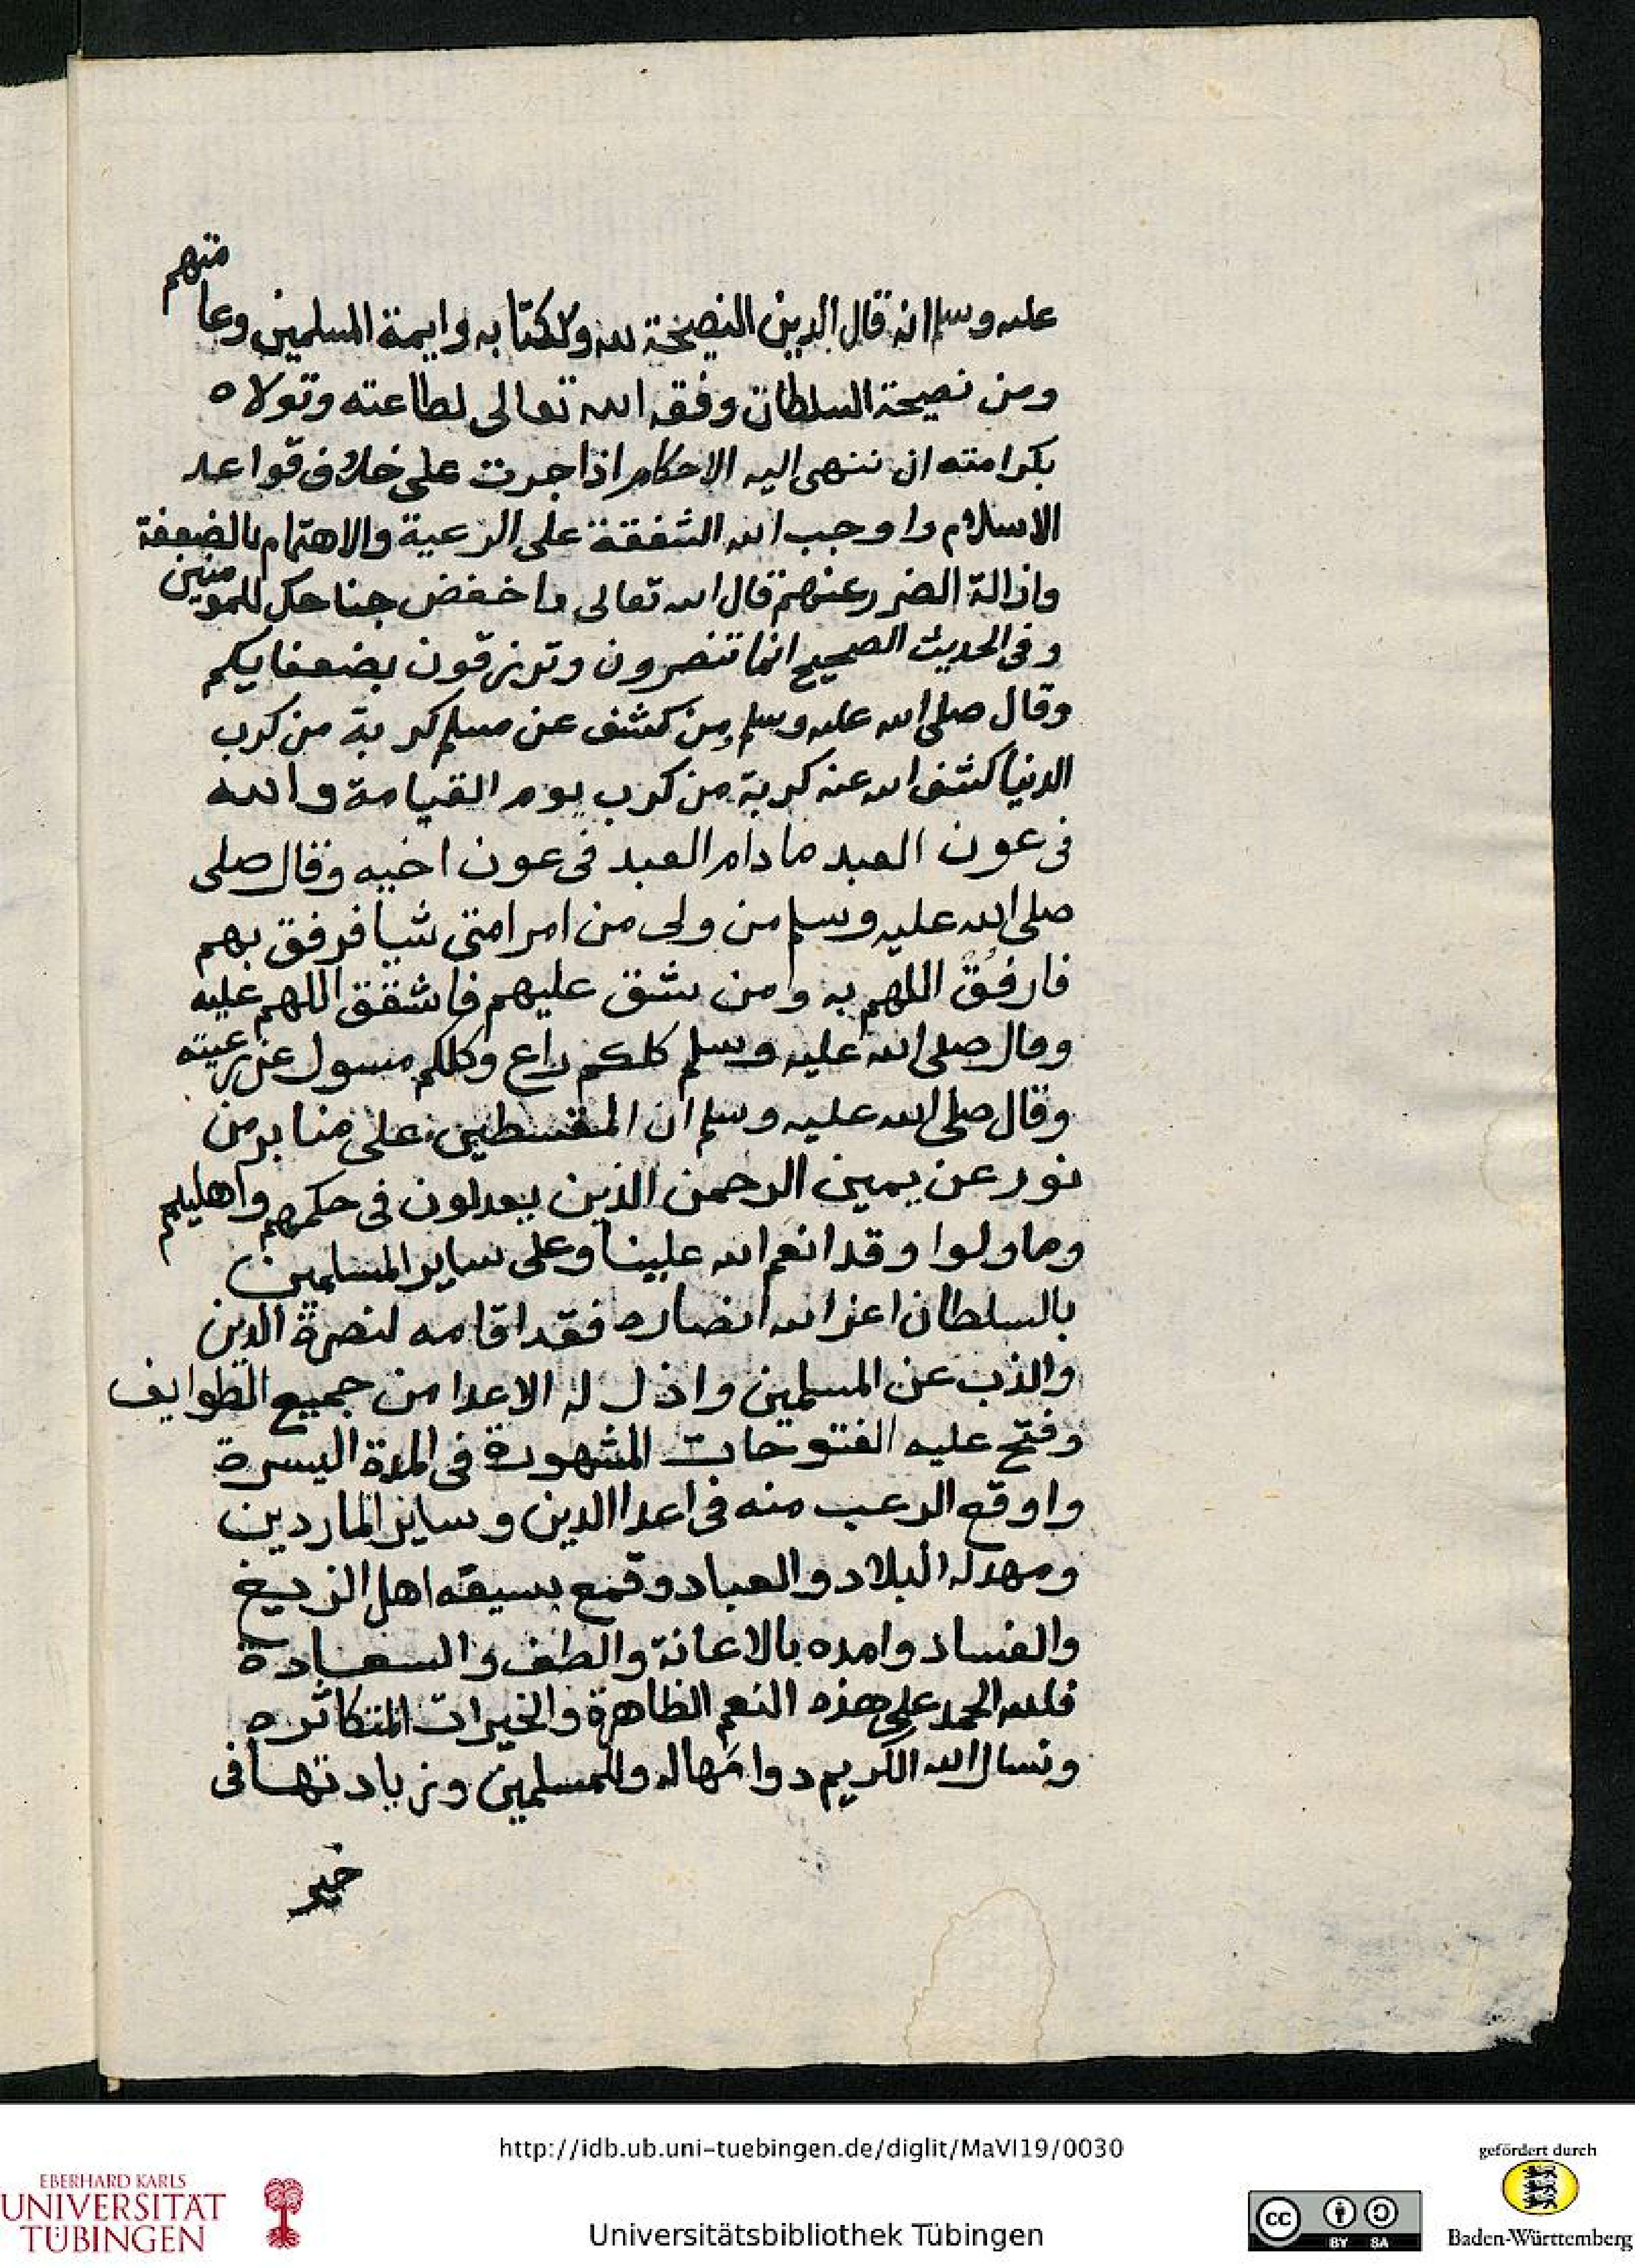 عليه وسلم انه قال الدين النصيحة لله ولكتابه وايمة المسلمين وعامتهم
ومن نصيحة السلطان وفقه الله تعالى لطاعته وتولاه
بكرامته ان ننهى اليه الاحكام اذا جرت على خلاف قواعد
الاسلام واوجب الله الشفقة على الرعية والاهتمام بالضعفة
وازالة الضرر عنهم قال الله تعالى واخفض جناحك للمومنين
وفى الحديث الصحيح انما تنصرون وترزقون بضعفايكم
وقال صلى الله عليه وسلم من كشف عن مسلم كربة من كرب
الدنيا كشف الله عنه كربة من كرب يوم القيامة والله
فى عون العبد مادام العبد فى عون اخيه وقال صلى
صلى الله عليه وسلم من ولى من امر امتى شيا فرفق بهم
فارفُق اللهم به ومن شق عليهم فاشقق اللهم عليه
وقال صلى الله عليه وسلم كلكم راع وكلكم مسول عن رعيته
وقال صلى الله عليه وسلم ان المقسطين على منابر من
نور عن يمين الرحمن الذين يعدلون فى حكمهم واهليهم
وما ولوا وقد انعم الله علينا وعلى ساير المسلمين
بالسلطان اعز الله انصاره فقد اقامه لنصرة الدين
والذب عن المسلمين واذل له الاعدا من جميع الطوايف
وفتح عليه الفتوحات المشهورة فى المدة اليسرة
واوقع الرعب منه فى اعدا الدين وساير الماردين
ومهد له البلاد والعباد وقمع بسيفه اهل الزيغ
والفساد وامده بالاعانة والطف والسعادة
فلله الحمد على هذه النعم الظاهرة والخيرات المتكاثره
ونسال الله الكريم دوامها له وللمسلمين وزيادتها فى
خير
http://idb.ub.uni-tuebingen.de/diglit/MaVI19/0030
EBERHARD KARLS
UNIVERSITÄT
TÜBINGEN
Universitätsbibliothek Tübingen
cc
BY SA
gefördert durch
Baden-Württemberg